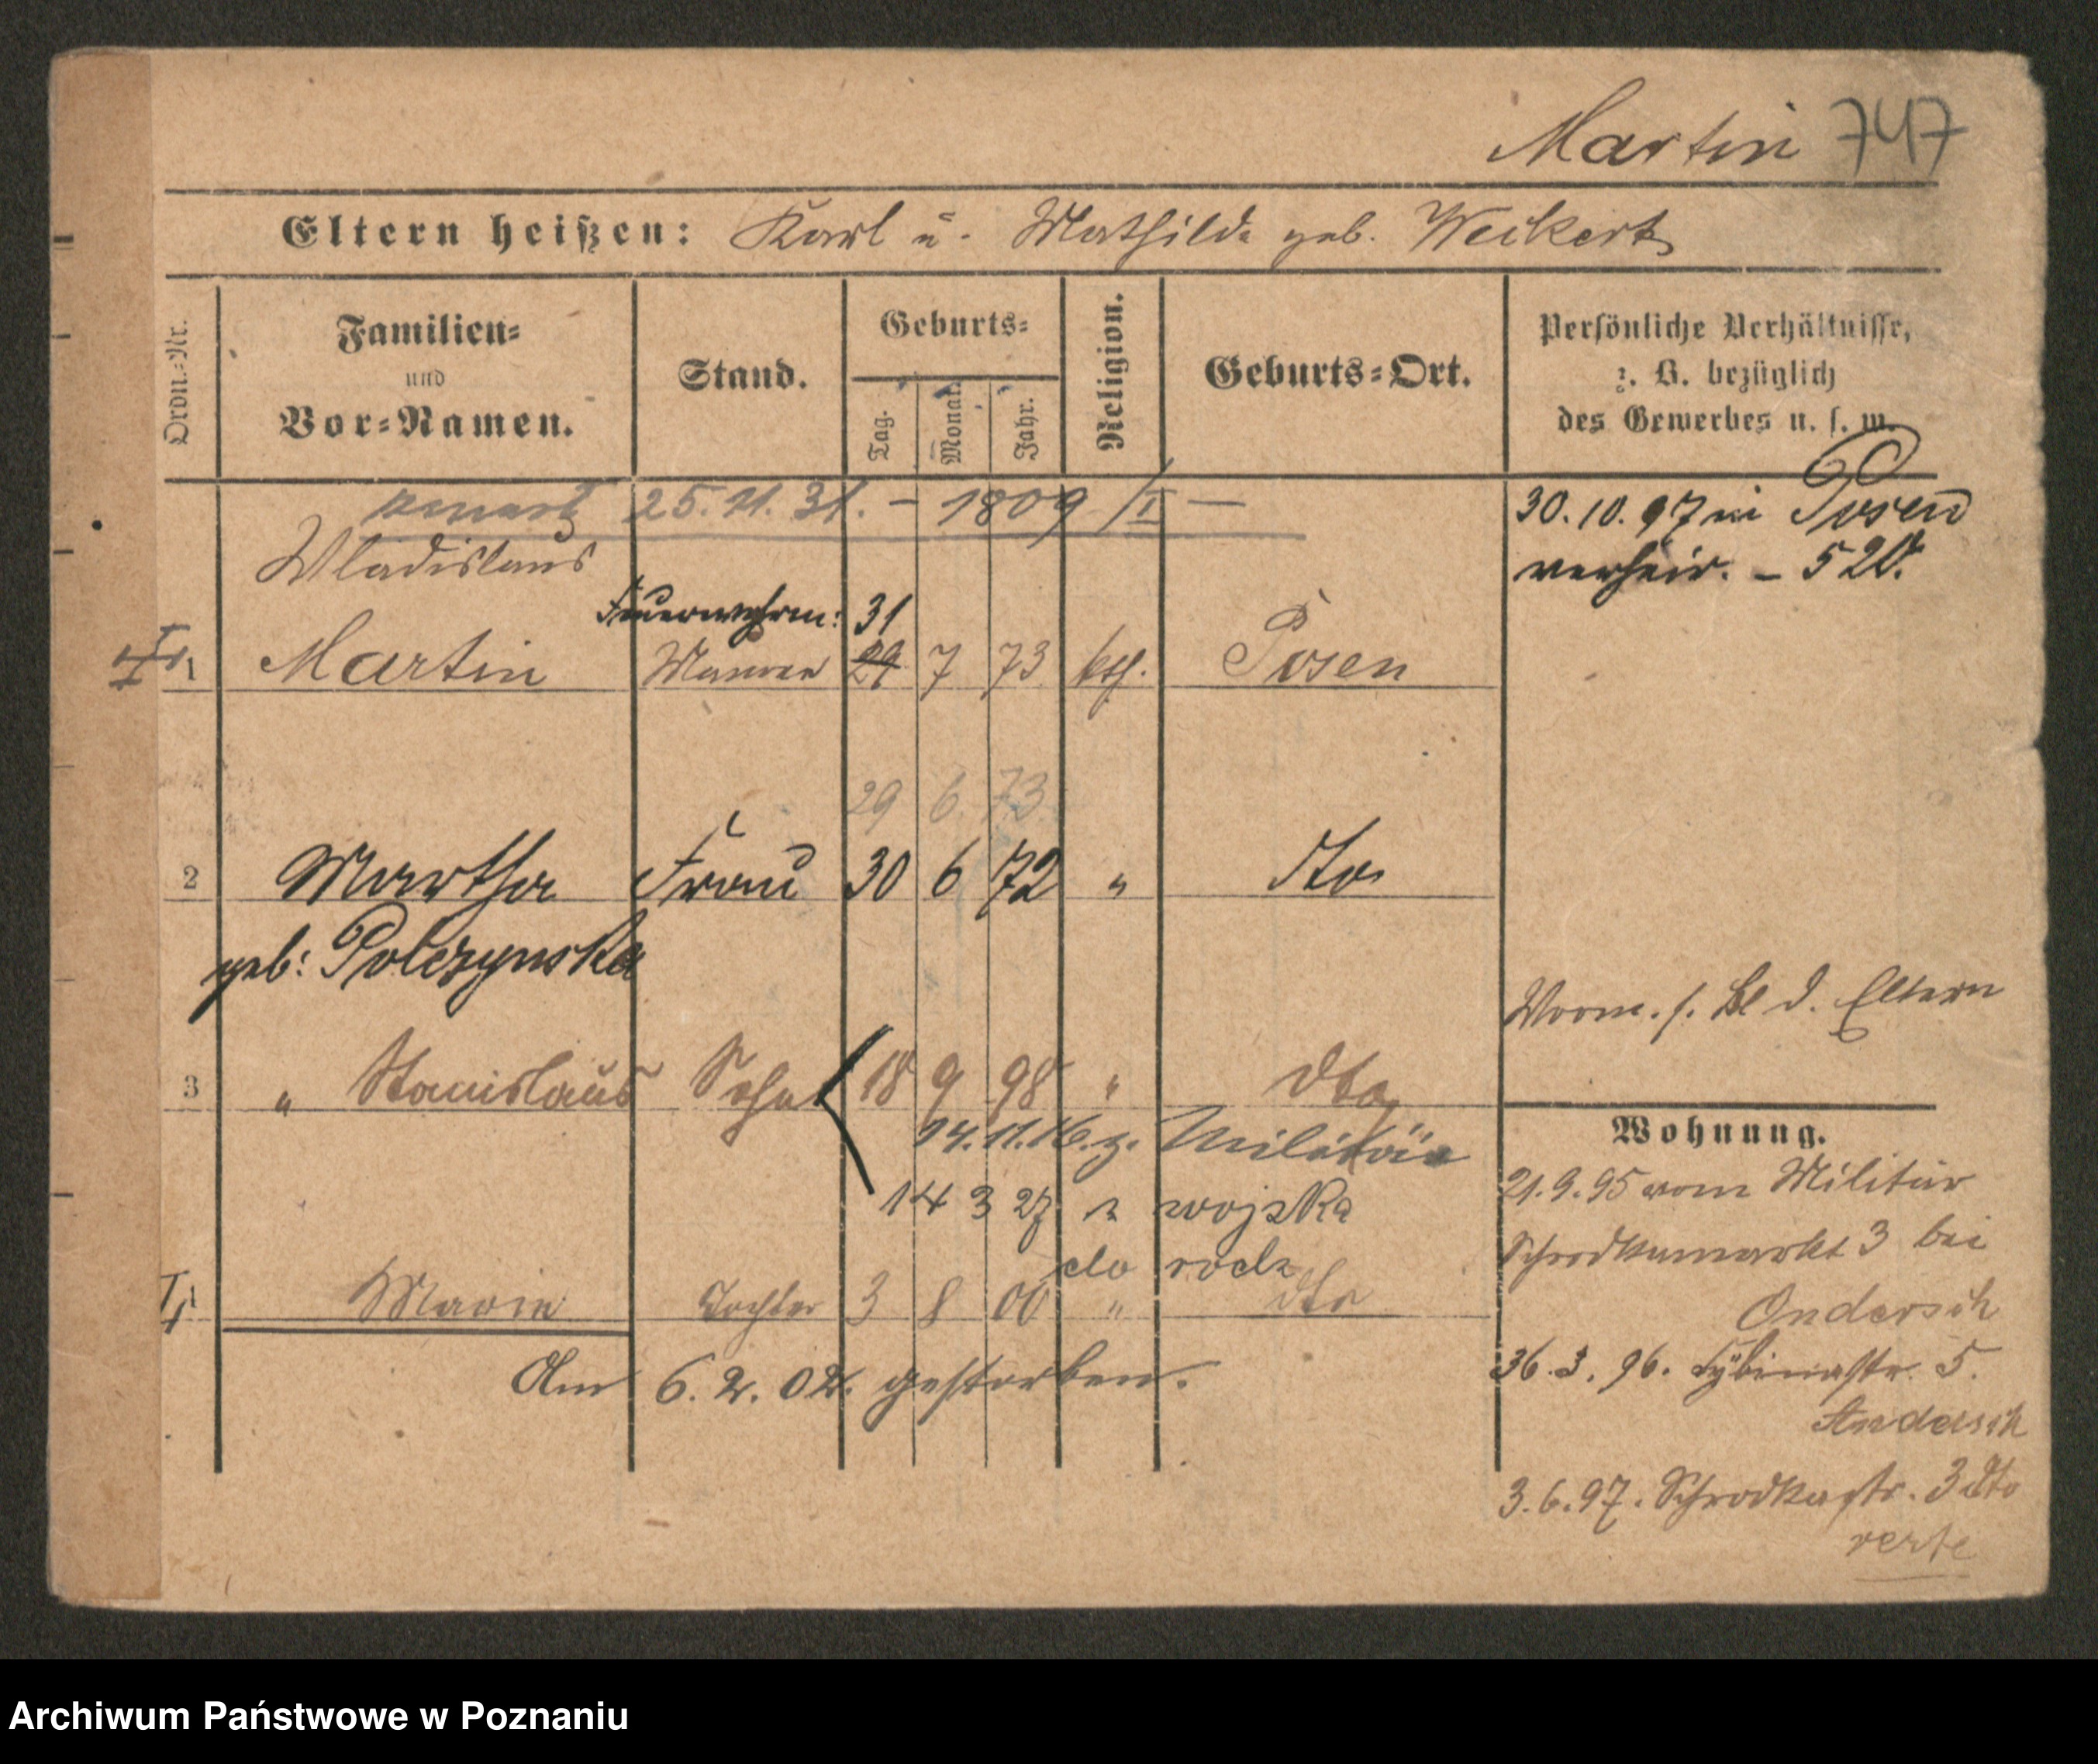 Martin 747
Eltern heißen: Karl u. Mathilde geb. Weikert
Ordn.-Nr.
Familien-
und
Vor-Namen.
Stand.
Geburts-
Tag.
Monat.
Jahr.
Religion.
Geburts-Ort.
Persönliche Verhältnisse,
z. B. bezüglich
des Gewerbes u. s. w.
25.11.31. – 1809 /I –
30.10.97 in Posen
verheir. – 520.
Wladislaus
Feuerwehrm: 31
1 Martin Maurer 29 7 73 kth. Posen
29 6 73
2 Martha Frau 30 6 72 " dto
geb: Polczynska
Vorm. s. Bl d. Eltern
3 " Stanislaus Sohn 18 9 98 " dto
14.11.16. z. Militär
14 3 27 z wojska
do rodz
Marie Tochter 3 8 00 " dto
Am 6.2.02. gestorben.
Wohnung.
21.9.95 vom Militär
Schrodkamarkt 3 bei
Andersch
3. 96. Cybinastr. 5.
Andersch
3.6.97. Schrodkastr. 3 dto
verte
Archiwum Państwowe w Poznaniu